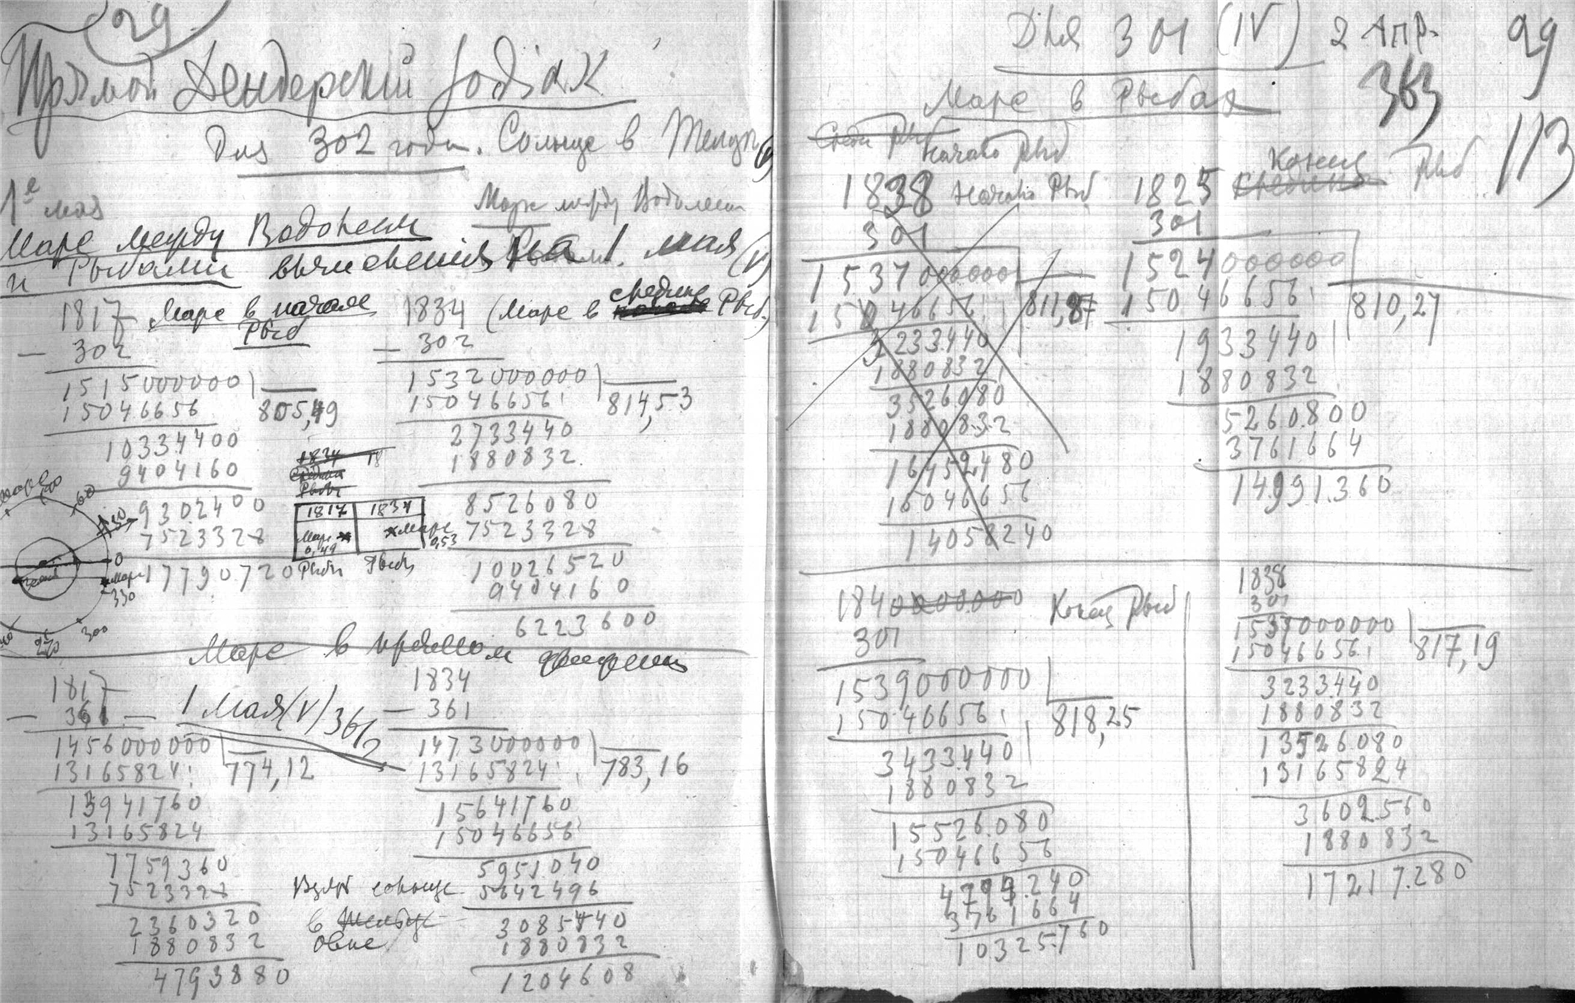 29
Прямой Дендерский Зодиак
Для 302 года. Солнце в Тельце
1е мая
Марс между Водолеем
Марс между Водолеем
и Рыбами вычисления на 1 мая (V)
1817 Марс в начале
Рыб
— 302
1515000000
15046656
805,49
10334400
9404160
9302400
7523328
17790720
1834 (Марс в средине Рыб)
— 302
1532000000
15046656
814,53
2733440
1880832
8526080
7523328
10026520
9404160
6223600
1834
Рыбы
1817 1834
Марс Марс
0,49 0,53
Рыбы Рыбы
60
0
Марс
330
300
270
Марс в прямом движении
1817
— 361 — 1 мая (V) 361
1456000000
13165824
774,12
13941760
13165824
7759360
7523328
2360320
1880832
4793880
1834
— 361
1473000000
13165824
783,16
15641760
15046656
5951040
5642496
3085440
1880832
1204608
Взять солнце
в Тельце
Овне
Для 301 (IV) 2 Апр. 99
363
Марс в Рыбах
113
Начало Рыб
1838 Начало Рыб
301
1537000000
15046656
811,87
3233440
1880832
3526080
1880832
16452480
15046656
14058240
1825 Конец Рыб
301
1524000000
15046656
810,27
1933440
1880832
5260800
3761664
14991360
1840000000 Конец Рыб
301
1539000000
15046656
818,25
3433440
1880832
15526080
15046656
4794240
3761664
10325760
1838
301
1537000000
15046656
817,19
3233440
1880832
13526080
13165824
3602560
1880832
17217280